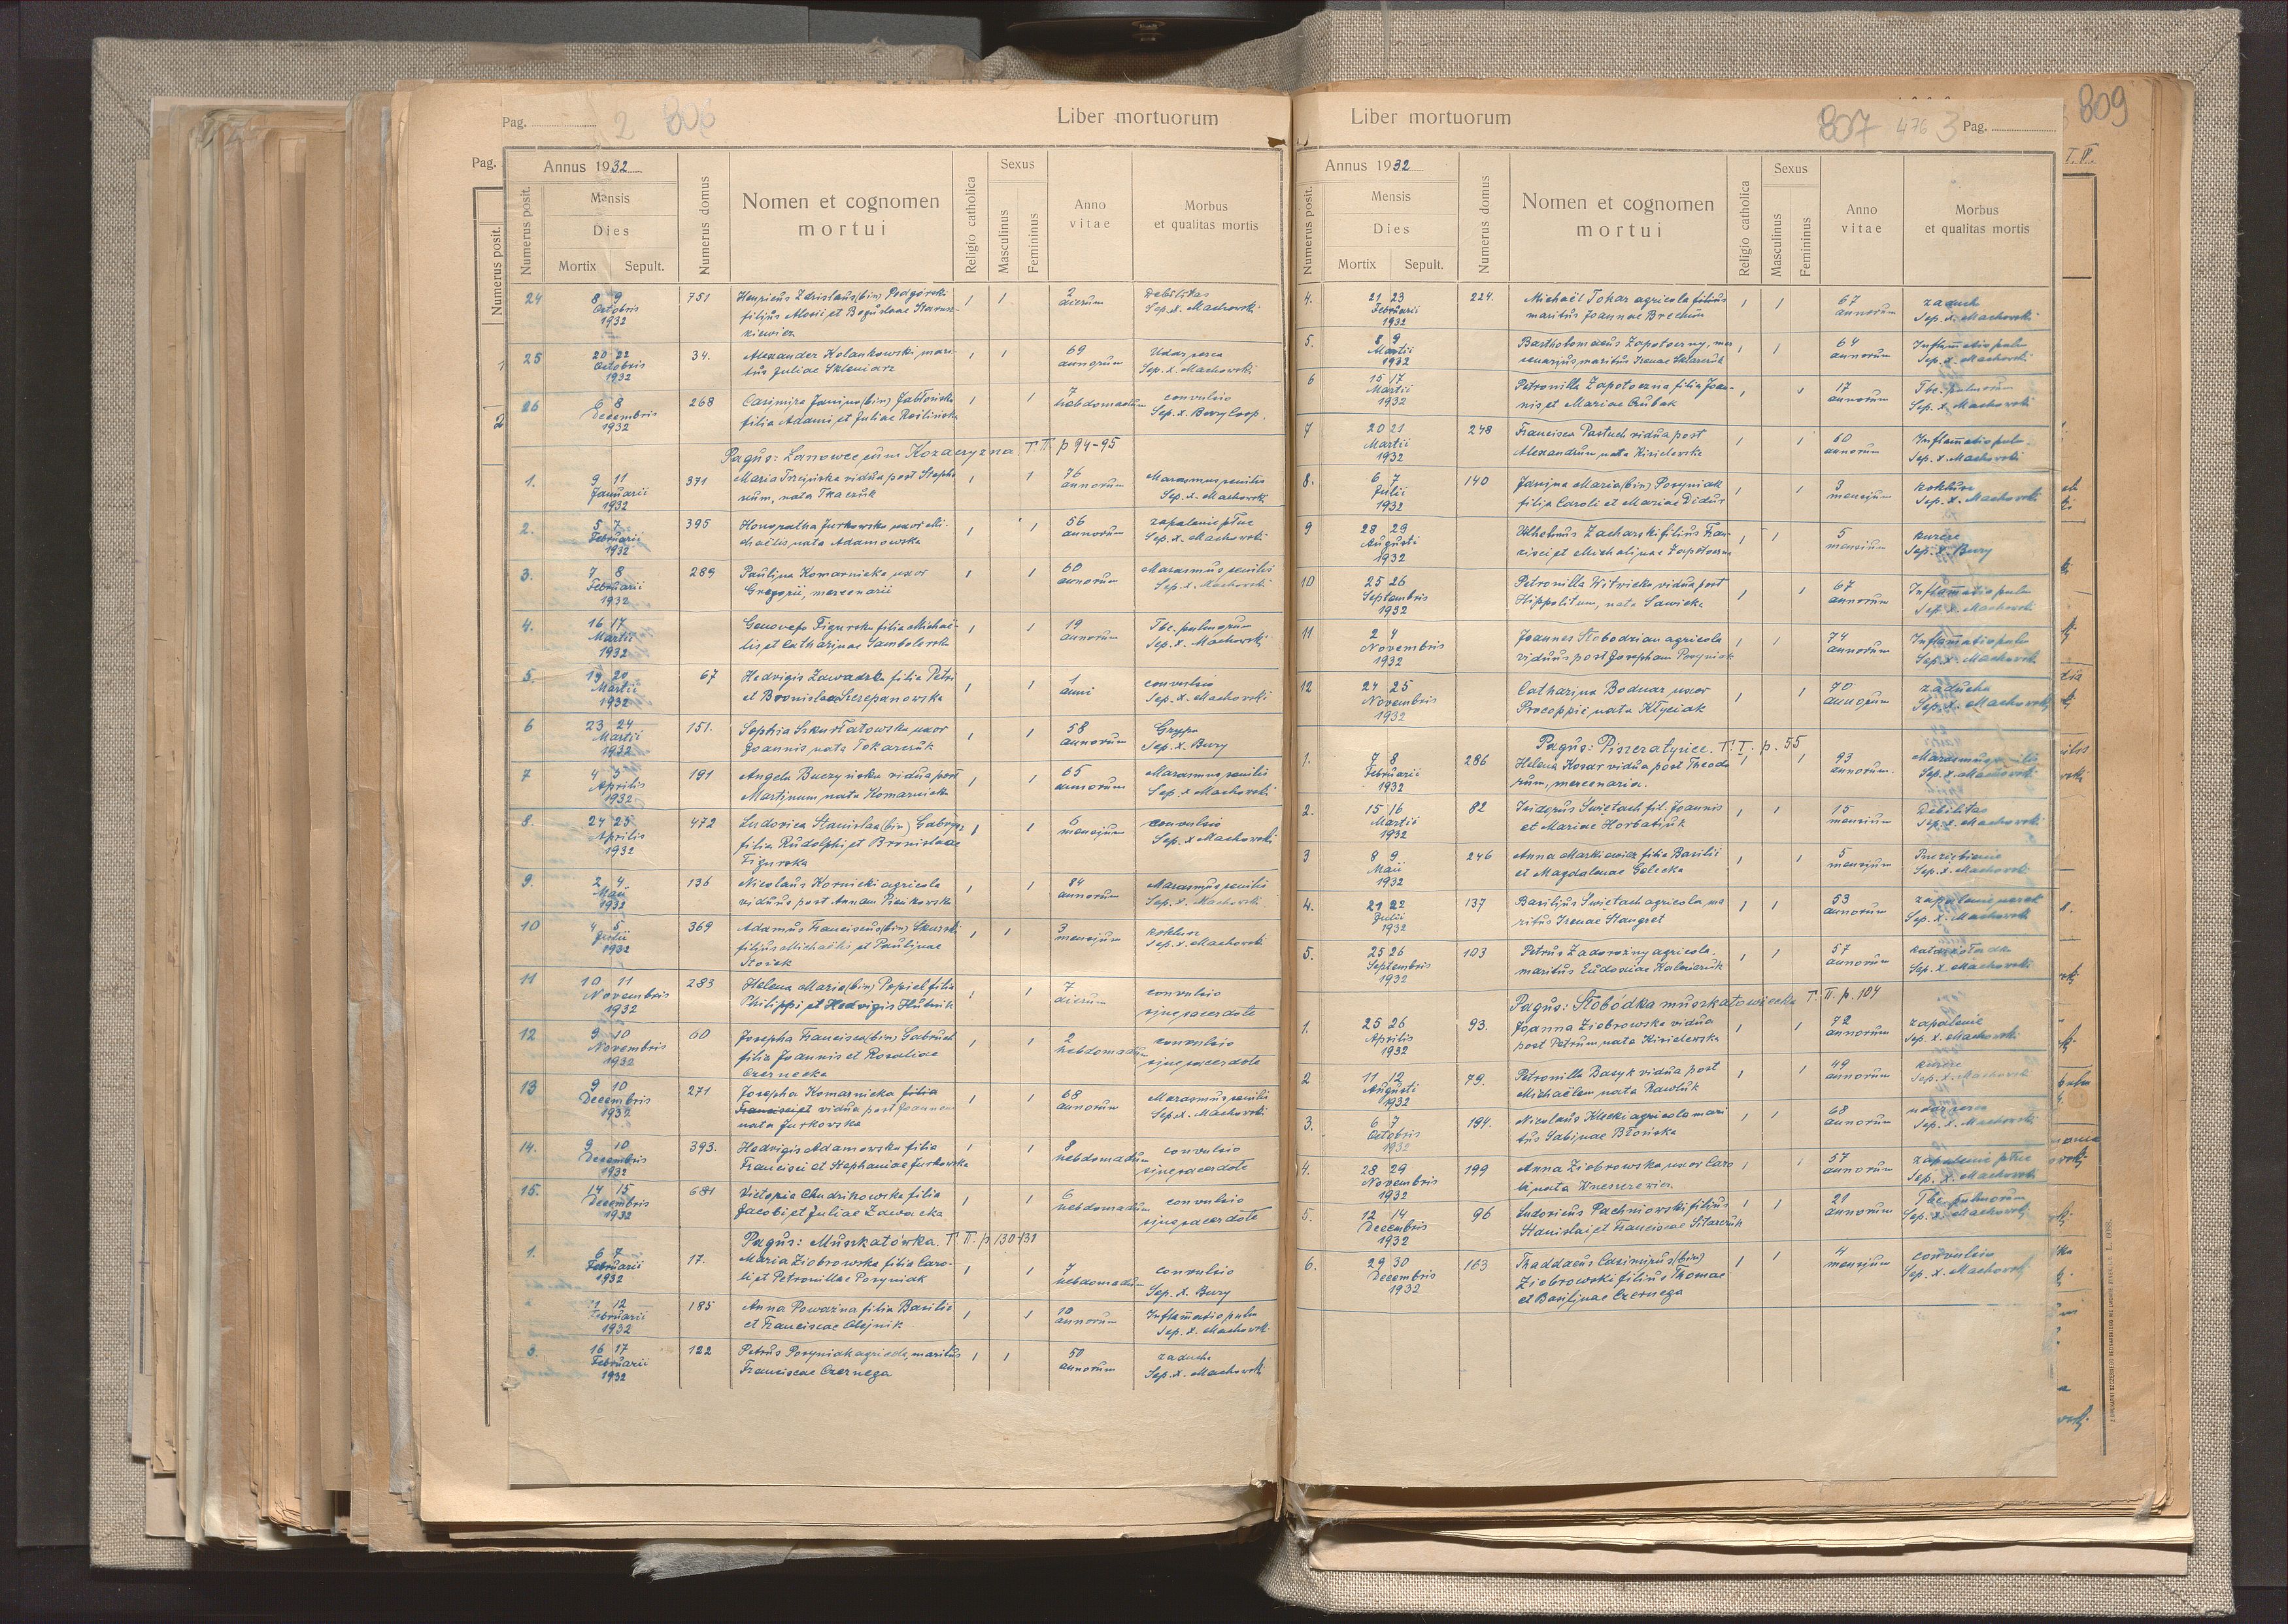 Pag. 2 806
Liber mortuorum
Annus 1932
Numerus posit.
Mensis
Dies
Mortix Sepult.
Numerus domus
Nomen et cognomen
mortui
Religio catholica
Sexus
Masculinus
Femininus
Anno
vitae
Morbus
et qualitas mortis
24 8 9 Octobris 1932 751 Henricus Zdzislaus (bin) Podgórski 1 1 2 dierum Debilitas
filius Aloisii et Boguslavae Starusz- Sep. X. Machowski
kiewicz
25 20 22 Octobris 1932 34. Alexander Kolankowski, mari- 1 1 69 annorum Udar serca
tus Juliae Skleniarz Sep. X. Machowski
26 6 8 Decembris 1932 268 Casimira Janina (bin) Jabłońska 1 1 7 hebdomadum convulsio
filia Adami et Juliae Roślińska Sep. X. Bury Coop.
Pagus: Lanowce cum Kozaczyzna. T. II. p 94-95
1. 9 11 Januarii 1932 371 Maria Trzcińska vidua post Stepha 1 1 76 annorum Marasmus senilis
num, nata Tkaczuk Sep. X. Machowski
2. 5 7 Februarii 1932 395 Honoratha Jurkowska uxor Mi- 1 1 56 annorum zapalenie płuc
chaëlis, nata Adamowska Sep. X. Machowski
3. 7 8 Februarii 1932 289 Paulina Komarnicka uxor 1 1 60 annorum Marasmus senilis
Gregorii, mercenarii Sep. X. Machowski
4. 16 17 Martii 1932 Genovefa Figurska filia Michaë- 1 1 19 annorum Tbc. pulmorum
lis et Catharinae Sambolorska Sep. X. Machowski
5. 19 20 Martii 1932 67 Hedvigis Zawadzka filia Petri 1 1 1 anni convulsio
et Bronislavae Szczepanowska Sep. X. Machowski
6 23 24 Martii 1932 151. Sophia Szkurłatowska uxor 1 1 58 annorum Grypa
Joannis nata Tokarczuk Sep. X. Bury
7 4 5 Aprilis 1932 191 Angela Buczyńska vidua post 1 1 65 annorum Marasmus senilis
Martinum nata Komarnicka Sep. X Machowski
8. 24 25 Aprilis 1932 472 Ludovica Stanislaa (bin) Gabrysz 1 1 6 mensium convulsio
filia Rudolphi et Bronislavae Sep. X Machowski
Figurska
9. 2 4 Maii 1932 136 Nicolaus Kornicki agricola 1 1 84 annorum Marasmus senilis
viduus post Annam Pieńkowska Sep. X. Machowski
10 4 5 Julii 1932 369 Adamus Franciscus (bin) Skurski 1 1 3 mensium koklusz
filius Michaëlis et Paulinae Sep. X. Machowski
Stosek
11 10 11 Novembris 1932 283 Helena Maria (bin) Popiel filia 1 1 7 dierum convulsio
Philippi et Hedvigis Hubnik sine sacerdote
12 9 10 Novembris 1932 60 Josepha Francisca (bin) Gabruch 1 1 2 hebdomadum convulsio
filia Joannis et Rosaliae sine sacerdote
Czernecka
13 9 10 Decembris 1932 271 Josepha Komarnicka filia 1 1 68 annorum Marasmus senilis
Francisci et vidua post Joannem Sep. X. Machowski
nata Jurkowska
14. 9 10 Decembris 1932 393. Hedvigis Adamowska filia 1 1 8 hebdomadum convulsio
Francisci et Stephaniae Jurkowska sine sacerdote
15. 14 15 Decembris 1932 681 Victoria Chudzikowska filia 1 1 6 hebdomadum convulsio
Jacobi et Juliae Zawacka sine sacerdote
Pagus: Muszkatówka. T. II. p. 130-131
1. 6 7 Februarii 1932 17. Maria Ziobrowska filia Caro- 1 1 7 hebdomadum convulsio
li et Petronillae Posyniak Sep. X. Bury
11 12 Februarii 1932 185 Anna Poważna filia Basilii 1 1 10 annorum Inflammatio pulm
et Franciscae Olejnik Sep. X. Machowski
3. 16 17 Februarii 1932 122 Petrus Posyniak agricola, maritus 1 1 50 annorum zaducha
Franciscae Czernega Sep. X. Machowski
Liber mortuorum
807 476 3 Pag.
Annus 1932
Numerus posit.
Mensis
Dies
Mortix Sepult.
Numerus domus
Nomen et cognomen
mortui
Religio catholica
Sexus
Masculinus
Femininus
Anno
vitae
Morbus
et qualitas mortis
4. 21 23 Februarii 1932 224. Michaël Tokar agricola filius 1 1 67 annorum zaduch
maritus Joannae Brechun Sep. X. Machowski
5. 8 9 Martii 1932 Bartholomaeus Zapotoczny, mer 1 1 64 annorum Inflammatio pulm
cenarius, maritus Irenae Sklarczuk Sep. X. Machowski
6 15 17 Martii 1932 Petronilla Zapotoczna filia Joan- 1 1 17 annorum Tbc. pulmorum
nis et Mariae Czubak Sep. X. Machowski
7 20 21 Martii 1932 248 Francisca Pastuch vidua post 1 1 60 annorum Inflammatio pulm.
Alexandrum nata Kisielewska Sep. X. Machowski
8. 6 7 Julii 1932 140 Janina Maria (bin) Posyniak 1 1 3 mensium koklusz
filia Caroli et Mariae Didus Sep. X. Machowski
9 28 29 Augusti 1932 Wilhelmus Zacharski filius Fran- 1 1 5 mensium kurcze
cisci et Michalinae Zapotoczna Sep. X. Bury
10 25 26 Septembris 1932 Petronilla Witwicka vidua post 1 1 67 annorum Inflammatio pulm
Hippolitum, nata Sawicka Sep. X. Machowski
11 2 4 Novembris 1932 Joannes Słobodzian agricola 1 1 74 annorum Inflammatio pulm
viduus post Josepham Posyniak Sep. X. Machowski
12 24 25 Novembris 1932 Catharina Bodnar uxor 1 1 70 annorum zaducha
Procoppii nata Kłysiak Sep. X. Machowski
Pagus: Piszczatynce. T. I. p. 55
1. 7 8 Februarii 1932 286 Helena Kosar vidua post Theodo 1 1 93 annorum. Marasmus senilis
rum, mercenaria. Sep. X. Machowski
2. 15 16 Martii 1932 82 Isidorus Swiętach fil. Joannis 1 1 15 mensium Debilitas
et Mariae Horbatiuk Sep. X. Machowski
3 8 9 Maii 1932 246 Anna Markiewicz filia Basilii 1 1 5 mensium Przeziębienie
et Magdalenae Golecka Sep. X. Machowski
4. 21 22 Julii 1932 137 Basilius Swietach agricola, ma 1 1 53 annorum zapalenie nerek
ritus Irenae Staugret Sep. X. Machowski
5. 25 26 Septembris 1932 103 Petrus Zadorożny agricola, 1 1 57 annorum katar żołądka
maritus Eudoxiae Kalwiczuk Sep. X. Machowski
Pagus: Słobódka muszkatowiecka T. II. p. 104
1. 25 26 Aprilis 1932 93. Joanna Ziobrowska vidua 1 1 72 annorum zapalenie
post Petrum nata Kisielewska Sep. X. Machowski
2 11 12 Augusti 1932 79. Petronilla Basyk vidua post 1 1 49 annorum kurcze
Michaëlem nata Pawluk Sep. X. Machowski
3. 6 7 Octobris 1932 194. Nicolaus Klecki agricola mari 1 1 68 annorum udar serca
tus Sabinae Błońska Sep. X. Machowski
4. 28 29 Novembris 1932 199 Anna Ziobrowska uxor Caro 1 1 57 annorum zapalenie płuc
li nata Sep. X. Machowski
5. 12 14 Decembris 1932 96 Ludovicus Pachniowski filius 1 1 21 annorum Tbc. pulmorum
Stanislai et Franciscae Sitarczuk Sep. X. Machowski
6. 29 30 Decembris 1932 163 Thaddaeus Casimirus (bin) 1 1 4 mensium convulsio
Ziobrowski filius Thomae Sep. X. Machowski
et Basilinae Czernega
809
T. V.
Pag.
Numerus posit.
1
2